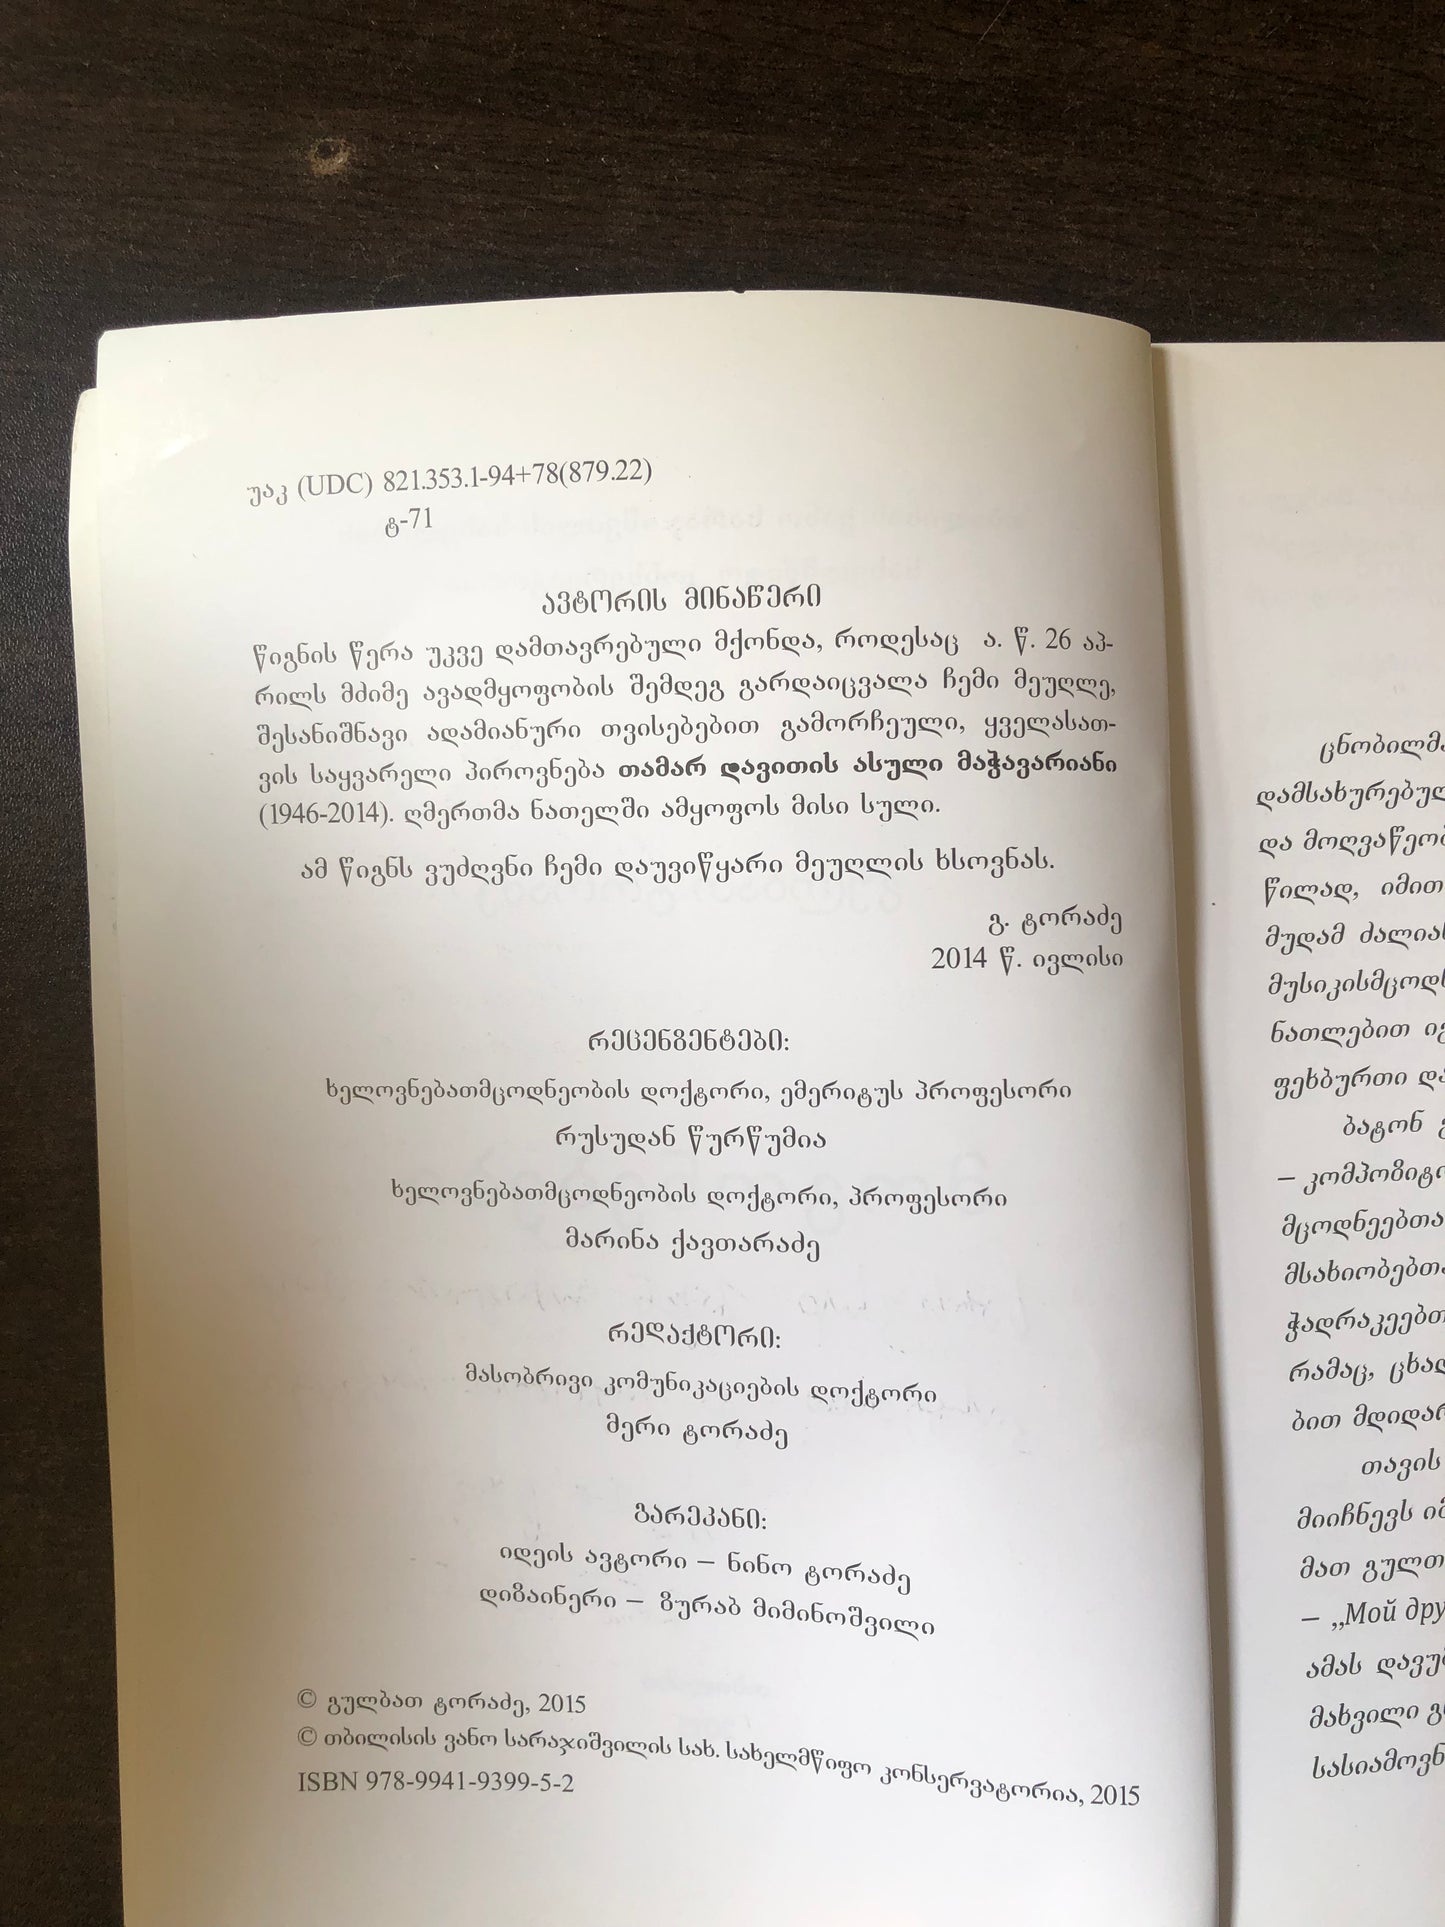 უაკ (UDC) 821.353.1-94+78(879.22)
ტ-71
ავტორის მინაწერი
წიგნის წერა უკვე დამთავრებული მქონდა, როდესაც ა. წ. 26 აპ-
რილს მძიმე ავადმყოფობის შემდეგ გარდაიცვალა ჩემი მეუღლე,
შესანიშნავი ადამიანური თვისებებით გამორჩეული, ყველასათ-
ვის საყვარელი პიროვნება თამარ დავითის ასული მაჭავარიანი
(1946-2014). ღმერთმა ნათელში ამყოფოს მისი სული.
ამ წიგნს ვუძღვნი ჩემი დაუვიწყარი მეუღლის ხსოვნას.
გ. ტორაძე
2014 წ. ივლისი
რეცენზენტები:
ხელოვნებათმცოდნეობის დოქტორი, ემერიტუს პროფესორი
რუსუდან წურწუმია
ხელოვნებათმცოდნეობის დოქტორი, პროფესორი
მარინა ქავთარაძე
რედაქტორი:
მასობრივი კომუნიკაციების დოქტორი
მერი ტორაძე
გარეკანი:
იდეის ავტორი – ნინო ტორაძე
დიზაინერი – ზურაბ მიმინოშვილი
© გულბათ ტორაძე, 2015
© თბილისის ვანო სარაჯიშვილის სახ. სახელმწიფო კონსერვატორია, 2015
ISBN 978-9941-9399-5-2
ცნობილმა
დამსახურებულ
და მოღვაწეობ
წილად, იმით
მუდამ ძალიან
მუსიკისმცოდნ
ნათლებით იგ
ფეხბურთი და
ბატონ გ
– კომპოზიტო
მცოდნეებთა
მსახიობებთა
ჭადრაკეებთ
რამაც, ცხად
ბით მდიდარ
თავის
მიიჩნევს იმ
მათ გულთ
– „Мой дру
ამას დავუ
მახვილი გ
სასიამოვნ